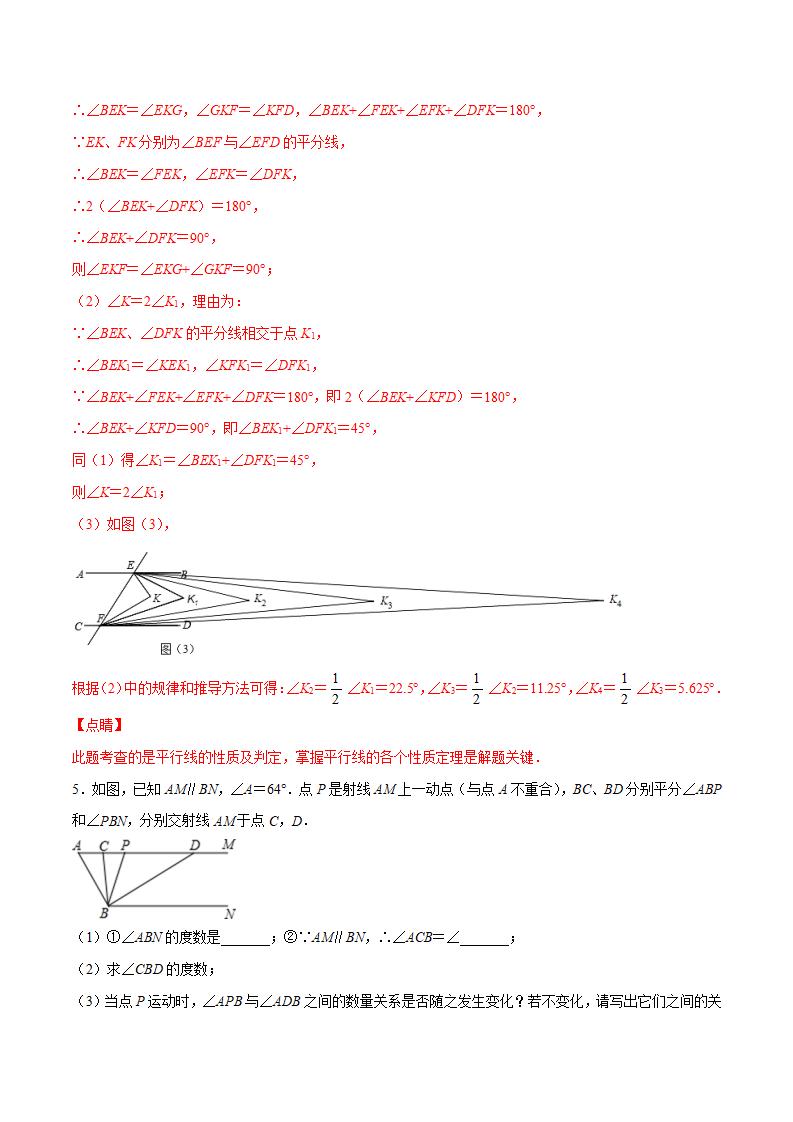 ∴∠BEK＝∠EKG，∠GKF＝∠KFD，∠BEK+∠FEK+∠EFK+∠DFK＝180°，
∵EK、FK分别为∠BEF与∠EFD的平分线，
∴∠BEK＝∠FEK，∠EFK＝∠DFK，
∴2（∠BEK+∠DFK）＝180°，
∴∠BEK+∠DFK＝90°，
则∠EKF＝∠EKG+∠GKF＝90°；
（2）∠K＝2∠K₁，理由为：
∵∠BEK、∠DFK的平分线相交于点K₁，
∴∠BEK₁＝∠KEK₁，∠KFK₁＝∠DFK₁，
∵∠BEK+∠FEK+∠EFK+∠DFK＝180°，即2（∠BEK+∠KFD）＝180°，
∴∠BEK+∠KFD＝90°，即∠BEK₁+∠DFK₁＝45°，
同（1）得∠K₁＝∠BEK₁+∠DFK₁＝45°，
则∠K＝2∠K₁；
（3）如图（3），
A E B
K K₁ K₂ K₃ K₄
C F D
图（3）
根据（2）中的规律和推导方法可得：∠K₂＝1/2∠K₁＝22.5°，∠K₃＝1/2∠K₂＝11.25°，∠K₄＝1/2∠K₃＝5.625°．
【点睛】
此题考查的是平行线的性质及判定，掌握平行线的各个性质定理是解题关键．
5．如图，已知AM∥BN，∠A＝64°．点P是射线AM上一动点（与点A不重合），BC、BD分别平分∠ABP
和∠PBN，分别交射线AM于点C，D．
A C P D M
B N
（1）①∠ABN的度数是_______；②∵AM∥BN，∴∠ACB＝∠_______；
（2）求∠CBD的度数；
（3）当点P运动时，∠APB与∠ADB之间的数量关系是否随之发生变化？若不变化，请写出它们之间的关